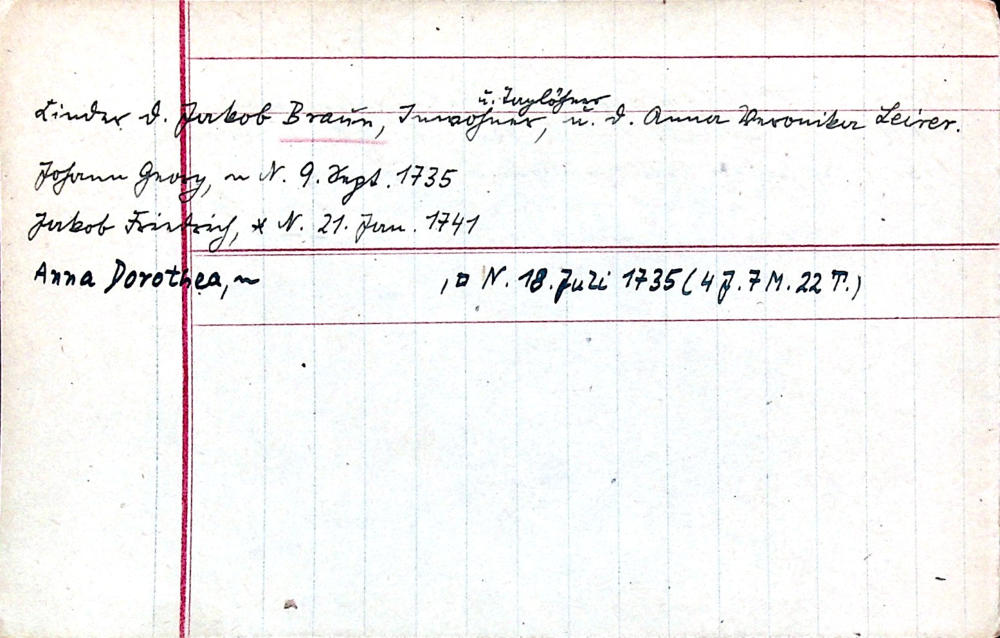 Kinder d. Jakob Braun, Inwohner, u. Taglöhner u. d. Anna Veronika Leirer.
Johann Georg, ~ N. 9. Sept. 1735
Jakob Friedrich, * N. 21. Jan. 1741
Anna Dorothea, ~ , □ N. 18. Juli 1735 (4 J. 7 M. 22 T.)